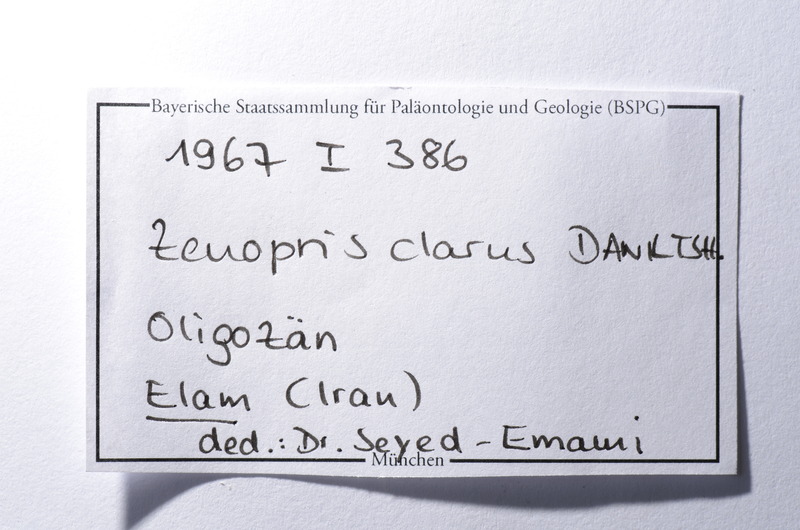 Bayerische Staatssammlung für Paläontologie und Geologie (BSPG)
1967 I 386
Zenopris clarus DANILTSH.
Oligozän
Elam (Iran)
ded.: Dr. Seyed-Emami
München